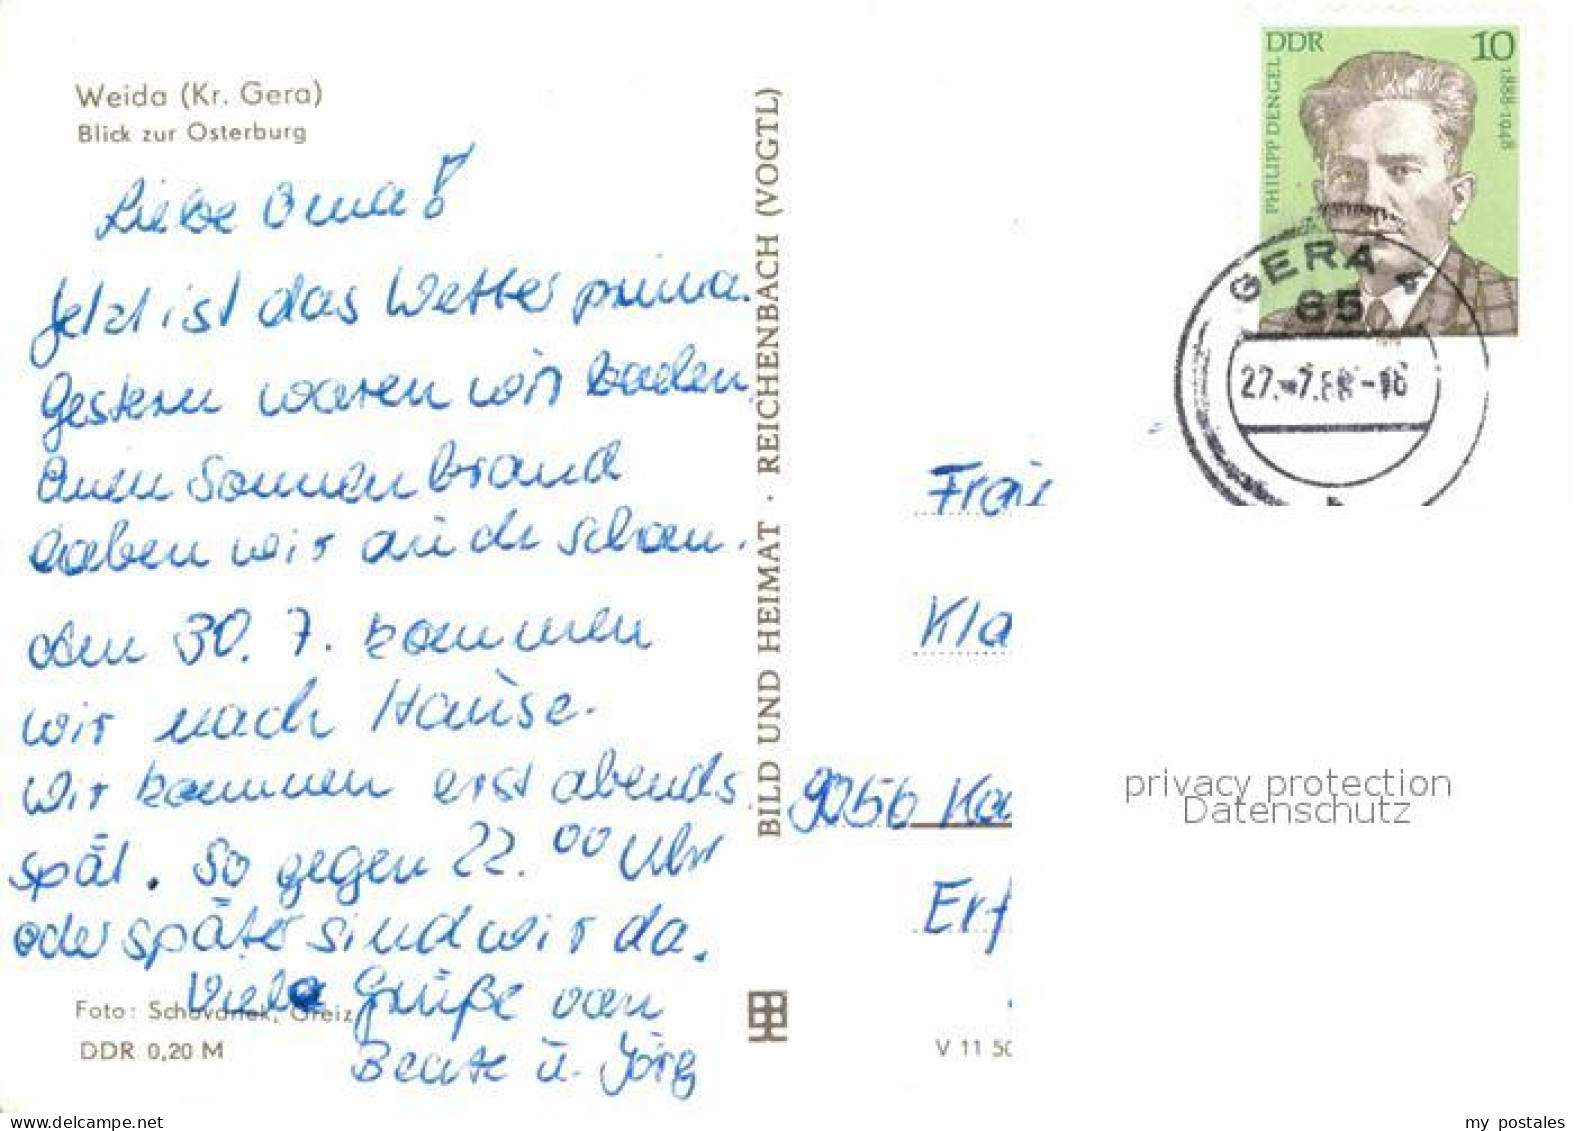 Weida (Kr. Gera)
Blick zur Osterburg
Liebe Oma!
Jetzt ist das Wetter prima.
Gestern waren wir baden
Einen Sonnenbrand
haben wir auch schon.
den 30. 7. kommen
wir nach Hause.
Wir kommen erst abends
spät. So gegen 22.00 Uhr
oder später sind wir da.
Viele Grüße von
Beate u. Jörg
Foto: Schovanek, Greiz
DDR 0,20 M
BILD UND HEIMAT · REICHENBACH (VOGTL)
DDR 10
PHILIPP DENGEL 1888-1948
GERA 4
65
27.-7.88-16
Frau
Kla
Ka
Erf
V 11 50
privacy protection
Datenschutz
my postales